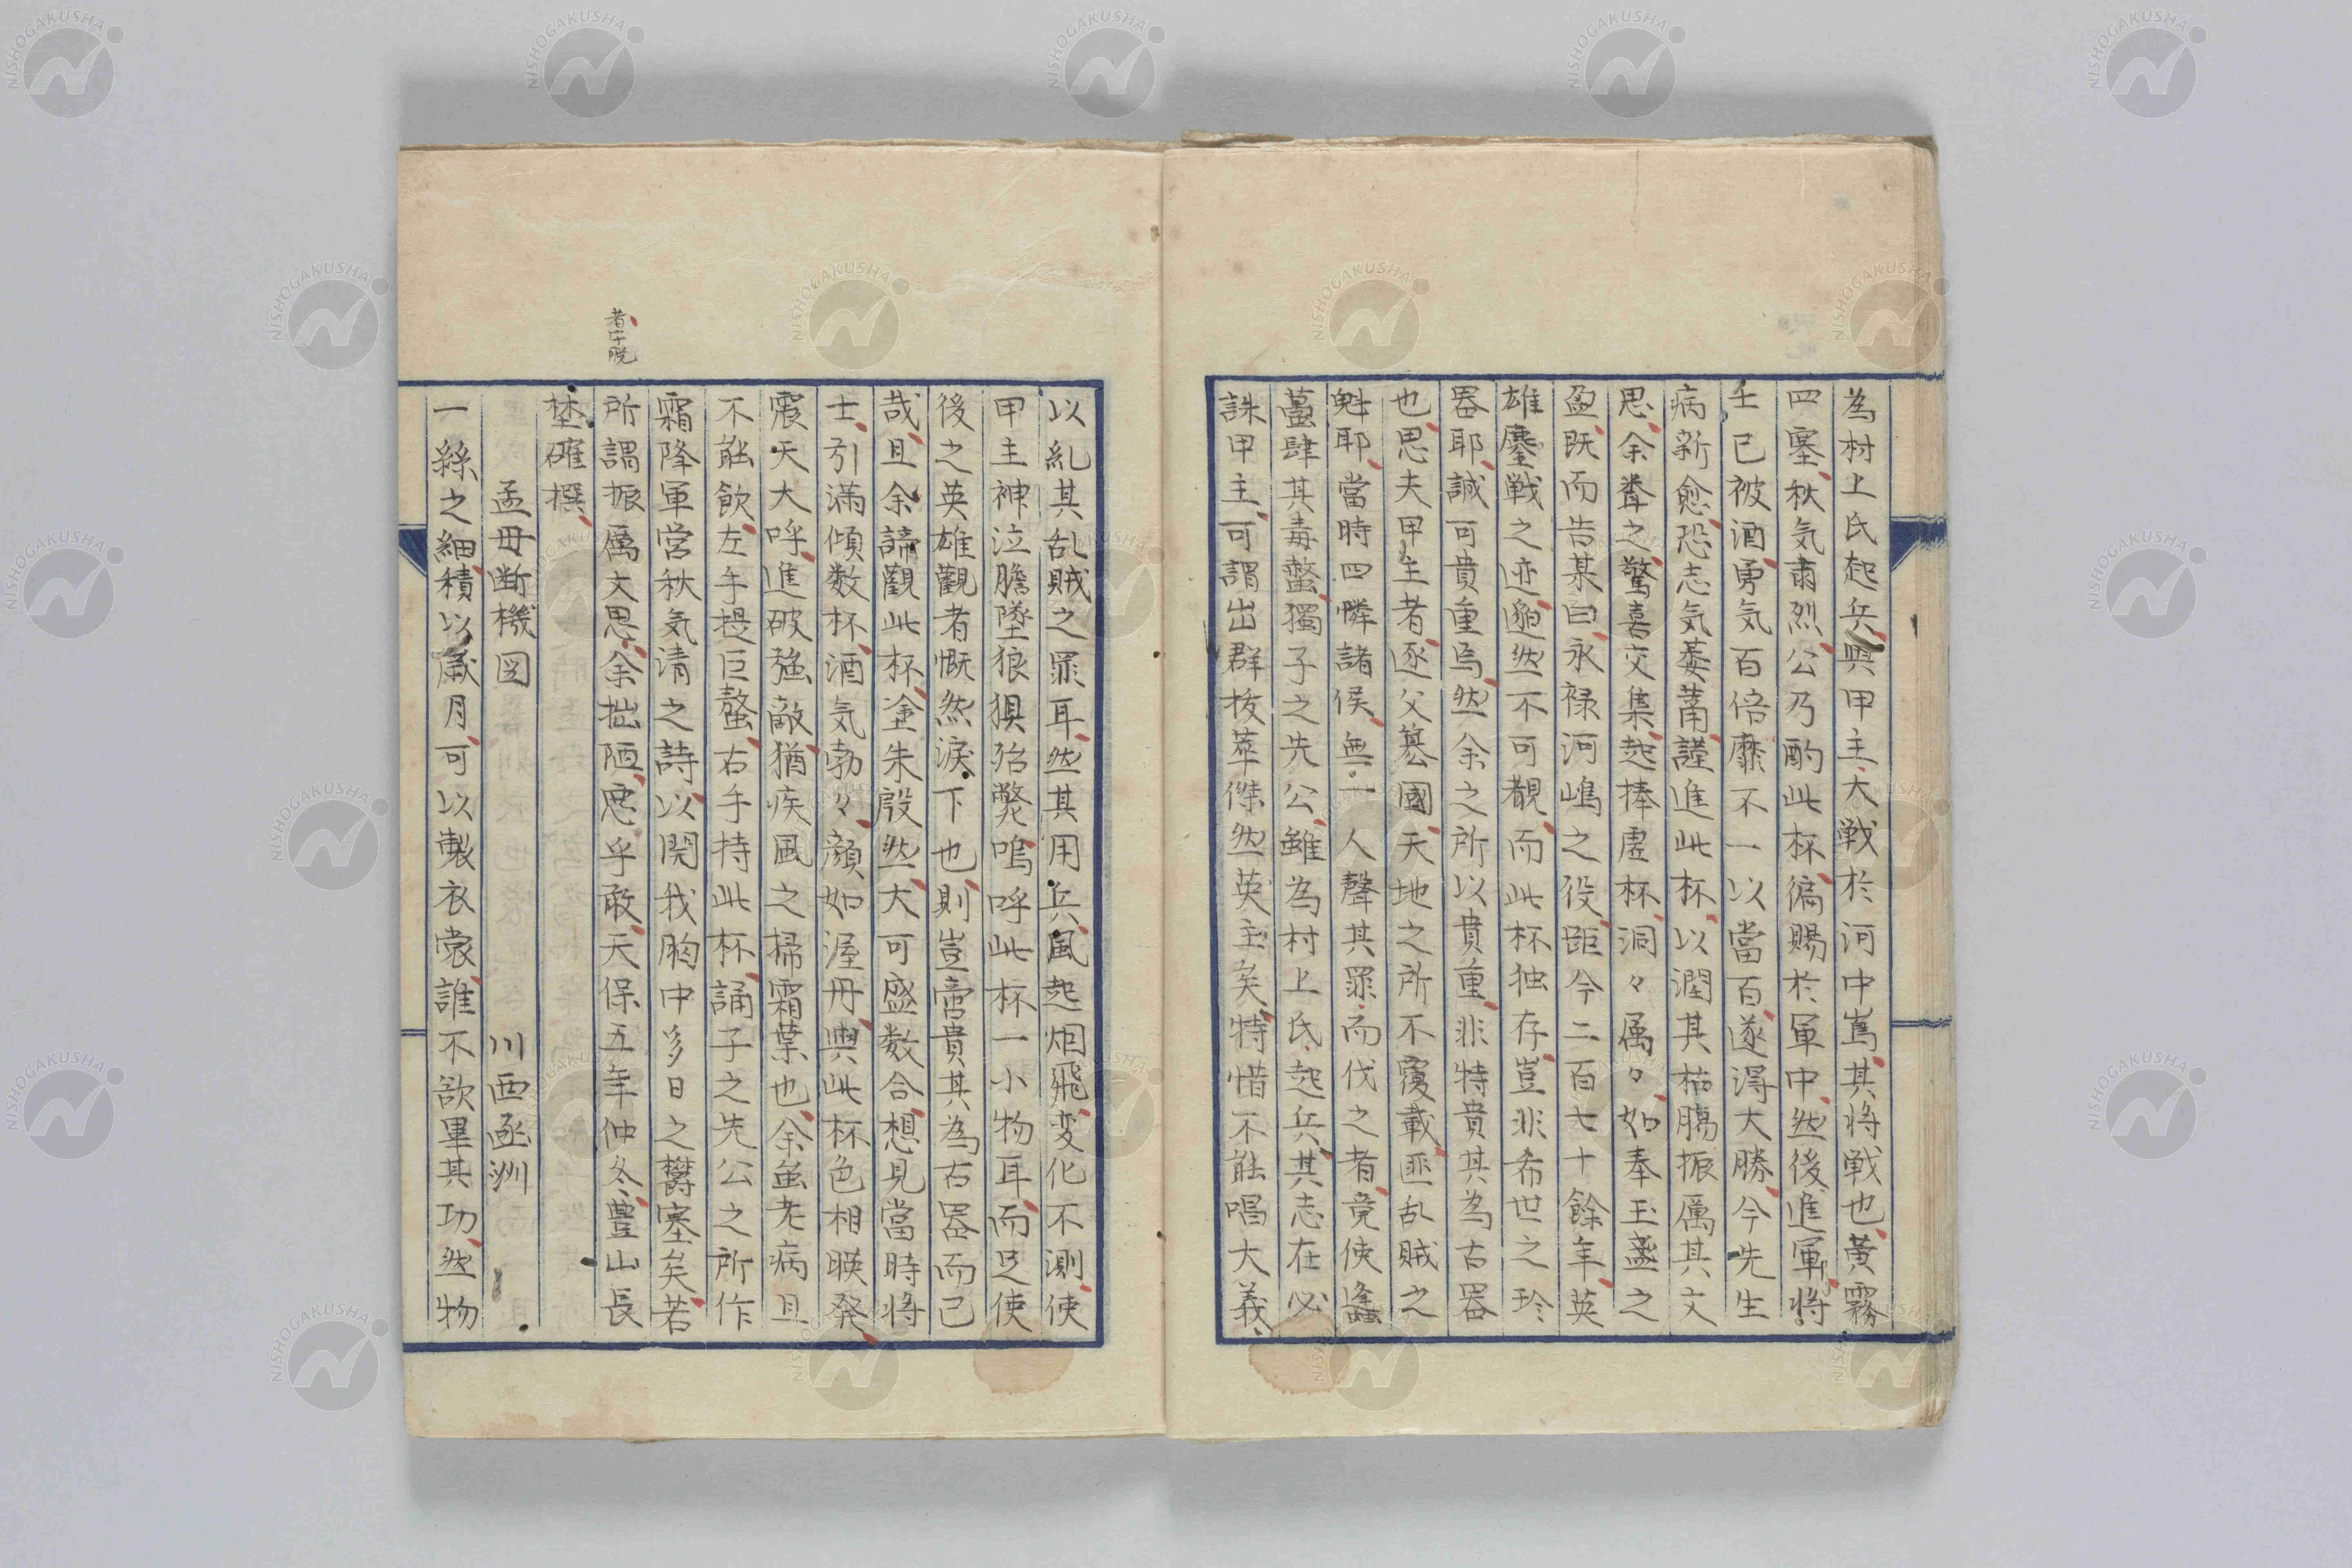 為村上氏起兵與甲主大戦於河中嶌其将戦也黄霧
四塞秋気粛烈公乃酌此杯徧賜於軍中然後進軍将
士已被酒勇気百倍靡不一以當百遂得大勝今先生
病新愈恐志気萎薾謹進此杯以潤其枯膓振厲其文
思余聋之驚喜交集起捧虚杯洞々属々如奉玉盞之
盈既而告某曰永禄河嶋之役距今二百七十餘年英
雄鏖戦之迹邈然不可覩而此杯独存豈非希世之珍
器耶誠可貴重焉然余之所以貴重非特貴其為古器
也思夫甲主者逐父簒國天地之所不覆載亟乱賊之
魁耶當時四隣諸侯無一人聲其罪而伐之者竟使蠭
蠆肆其毒螫獨子之先公雖為村上氏起兵其志在必
誅甲主可謂出群抜萃傑然英主矣特惜不能唱大義
以乱其乱賊之罪耳然其用兵風起烟飛変化不測使
甲主神泣膽墜狼狽殆斃嗚呼此杯一小物耳而足使
後之英雄觀者慨然淚下也則豈啻貴其為古器而已
哉且余諦觀此杯塗朱殷然大可盛数合想見當時将
士引満傾数杯酒気勃々顔如渥丹與此杯色相暎発
震天大呼進破強敵猶疾風之掃霜葉也余虽老病且
不能飲左手提巨螯右手持此杯誦子之先公之所作
霜降軍営秋気清之詩以開我胸中多日之欝塞矣若
者字脱
所謂振厲文思余拙陋愿乎敢天保五年仲冬豊山長
埜確撰
孟母断機図 川西函洲
一絲之細積以歳月可以製衣裳誰不欲畢其功然物